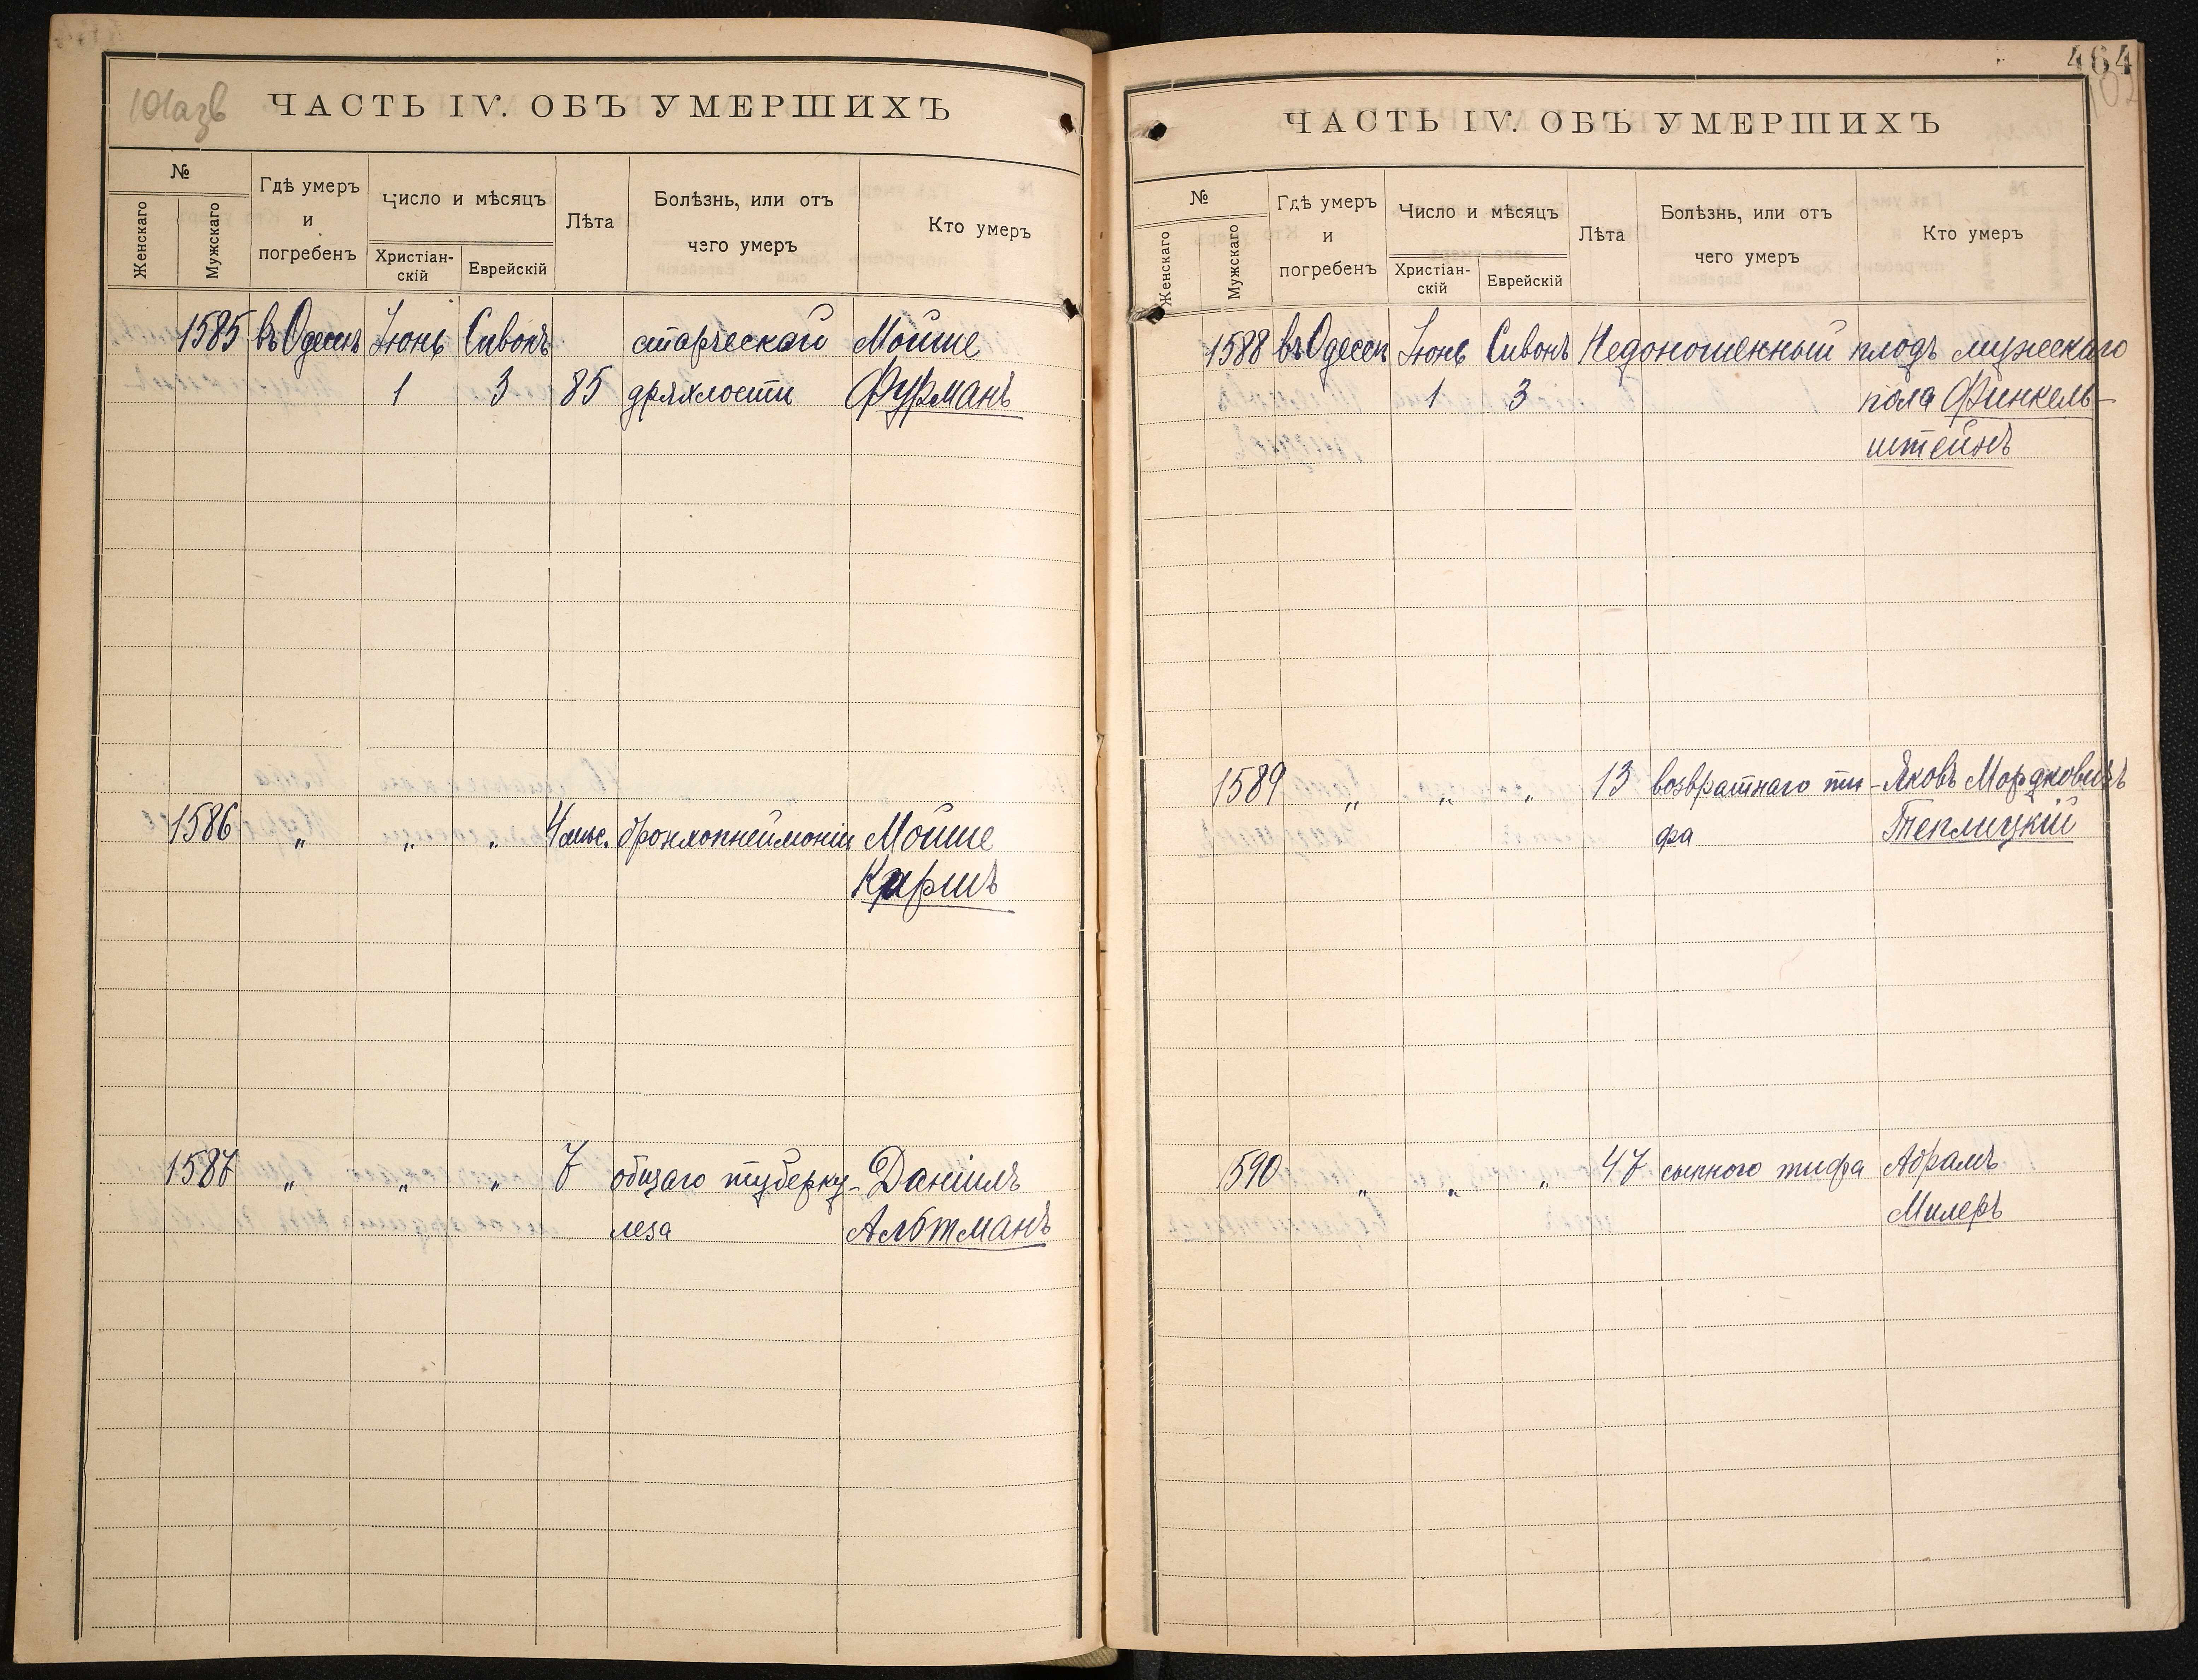 101азв
ЧАСТЬ IV. ОБЪ УМЕРШИХЪ
№
Женскаго
Мужскаго
Гдѣ умеръ
и
погребенъ
Число и мѣсяцъ
Христіан-
скій
Еврейскій
Лѣта
Болѣзнь, или отъ
чего умеръ
Кто умеръ
1585 въ Одессѣ Іюнь Сивонъ старческой Мойше
1 3 85 дряхлости Фурманъ
1586 „ „ „ 4 мѣс. бронхопнеймоніи Мойше
Каршъ
1587 „ „ „ 7 общаго туберку- Даніилъ
леза Альтманъ
464
102
ЧАСТЬ IV. ОБЪ УМЕРШИХЪ
№
Женскаго
Мужскаго
Гдѣ умеръ
и
погребенъ
Число и мѣсяцъ
Христіан-
скій
Еврейскій
Лѣта
Болѣзнь, или отъ
чего умеръ
Кто умеръ
1588 въ Одессѣ Іюнь Сивонъ Недоношенный плодъ мужескаго
1 3 пола Финкель-
штейнъ
1589 „ „ „ 13 возвратнаго ти- Яковъ Мордковичъ
фа Теплицкій
1590 „ „ „ 47 сыпного тифа Абрамъ
Милеръ